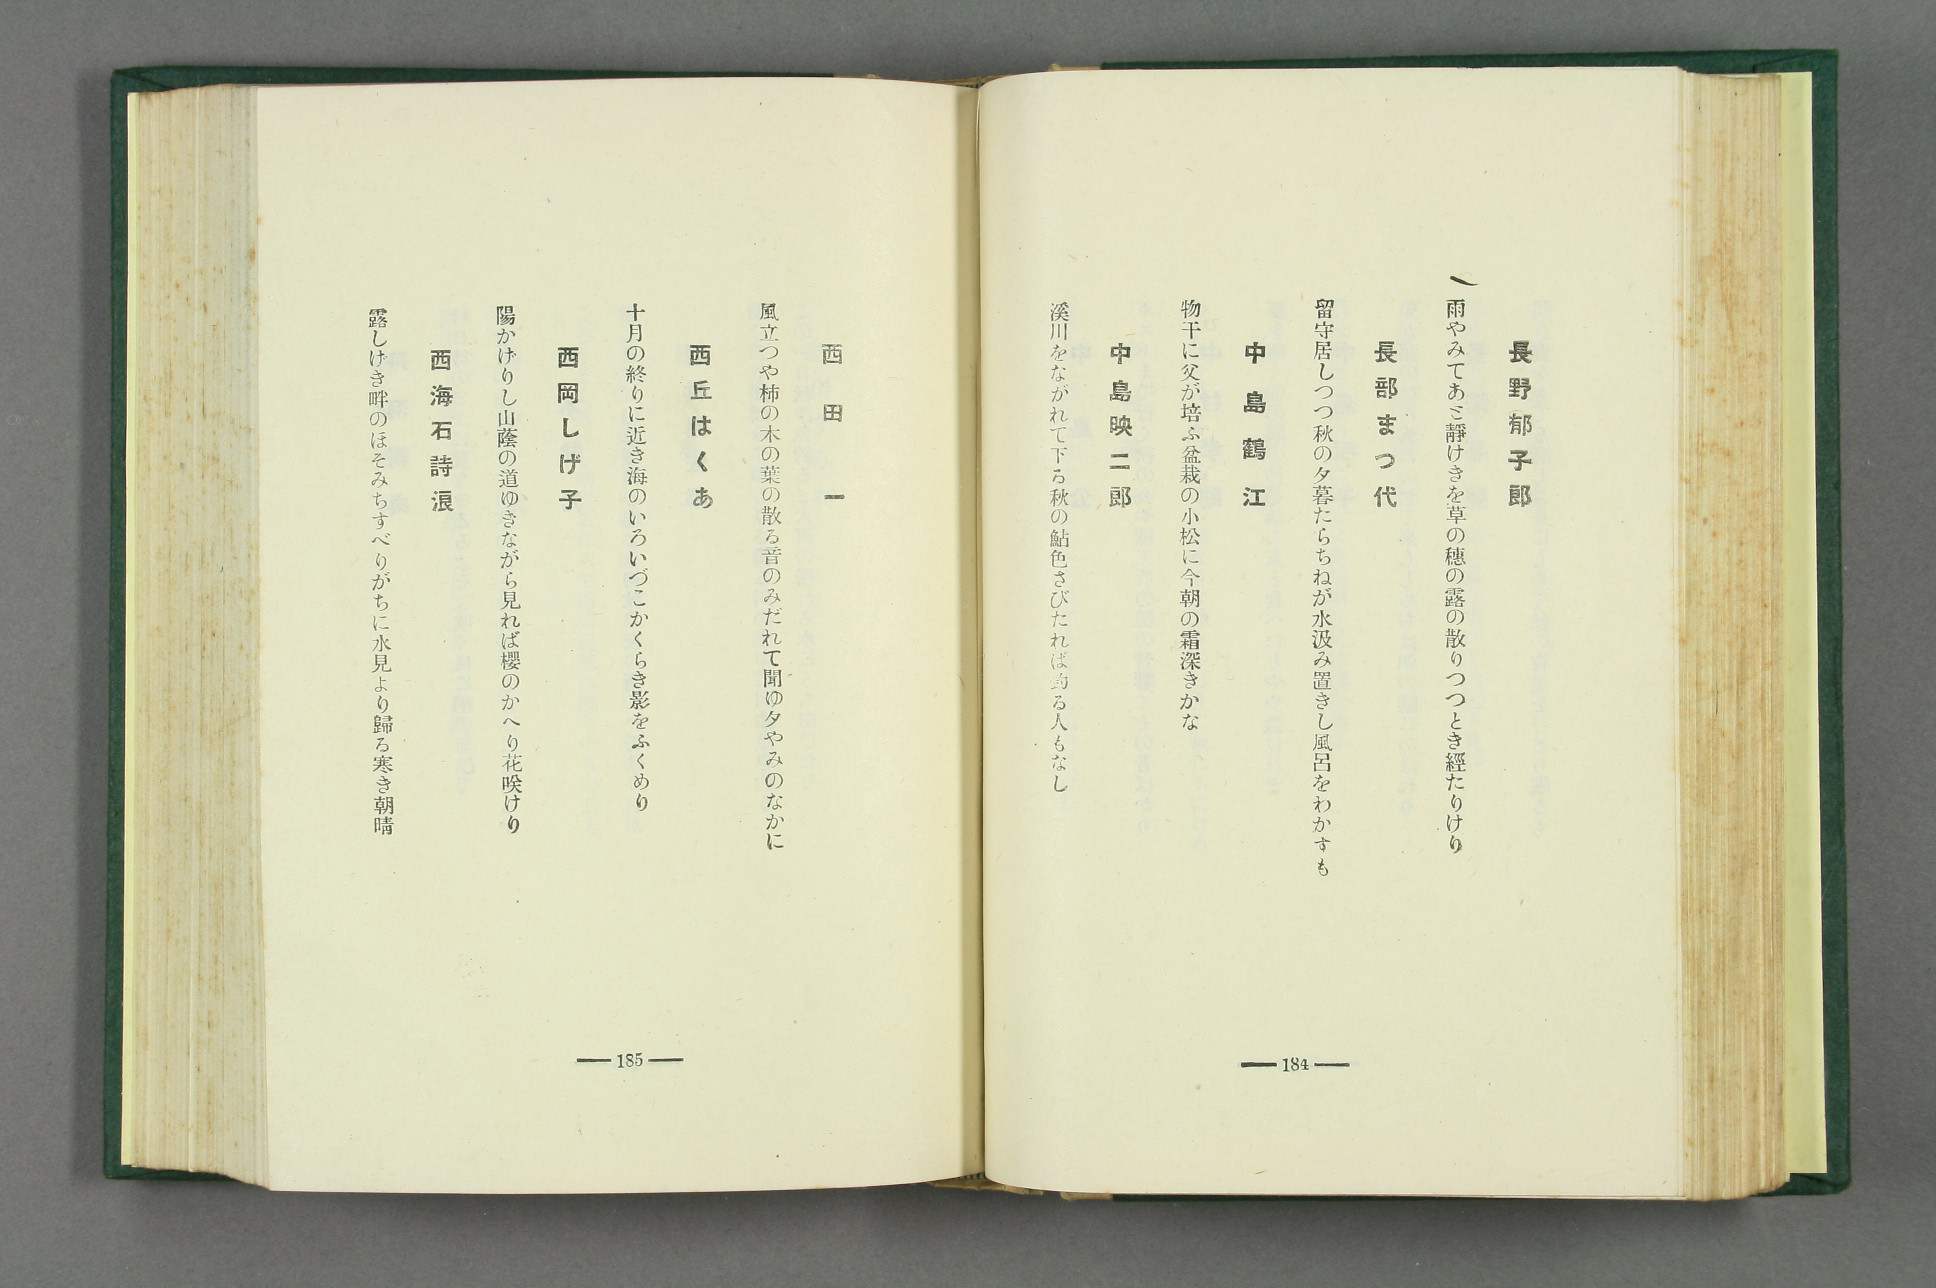 長野郁子郎
雨やみてあと靜けきを草の穗の露の散りつつとき經たりけり
長部まつ代
留守居しつつ秋の夕暮たらちねが水汲み置きし風呂をわかすも
中島鶴江
物干に父が培ふ盆栽の小松に今朝の霜深きかな
中島映二郎
溪川をながれて下る秋の鮎色さびたれば釣る人もなし
184
西田一
風立つや柿の木の葉の散る音のみだれて聞ゆ夕やみのなかに
西丘はくあ
十月の終りに近き海のいろいづこかくらき影をふくめり
西岡しげ子
陽かげりし山蔭の道ゆきながら見れば櫻のかへり花咲けり
西海石詩浪
露しけき畔のほそみちすべりがちに水見より歸る寒き朝晴
185